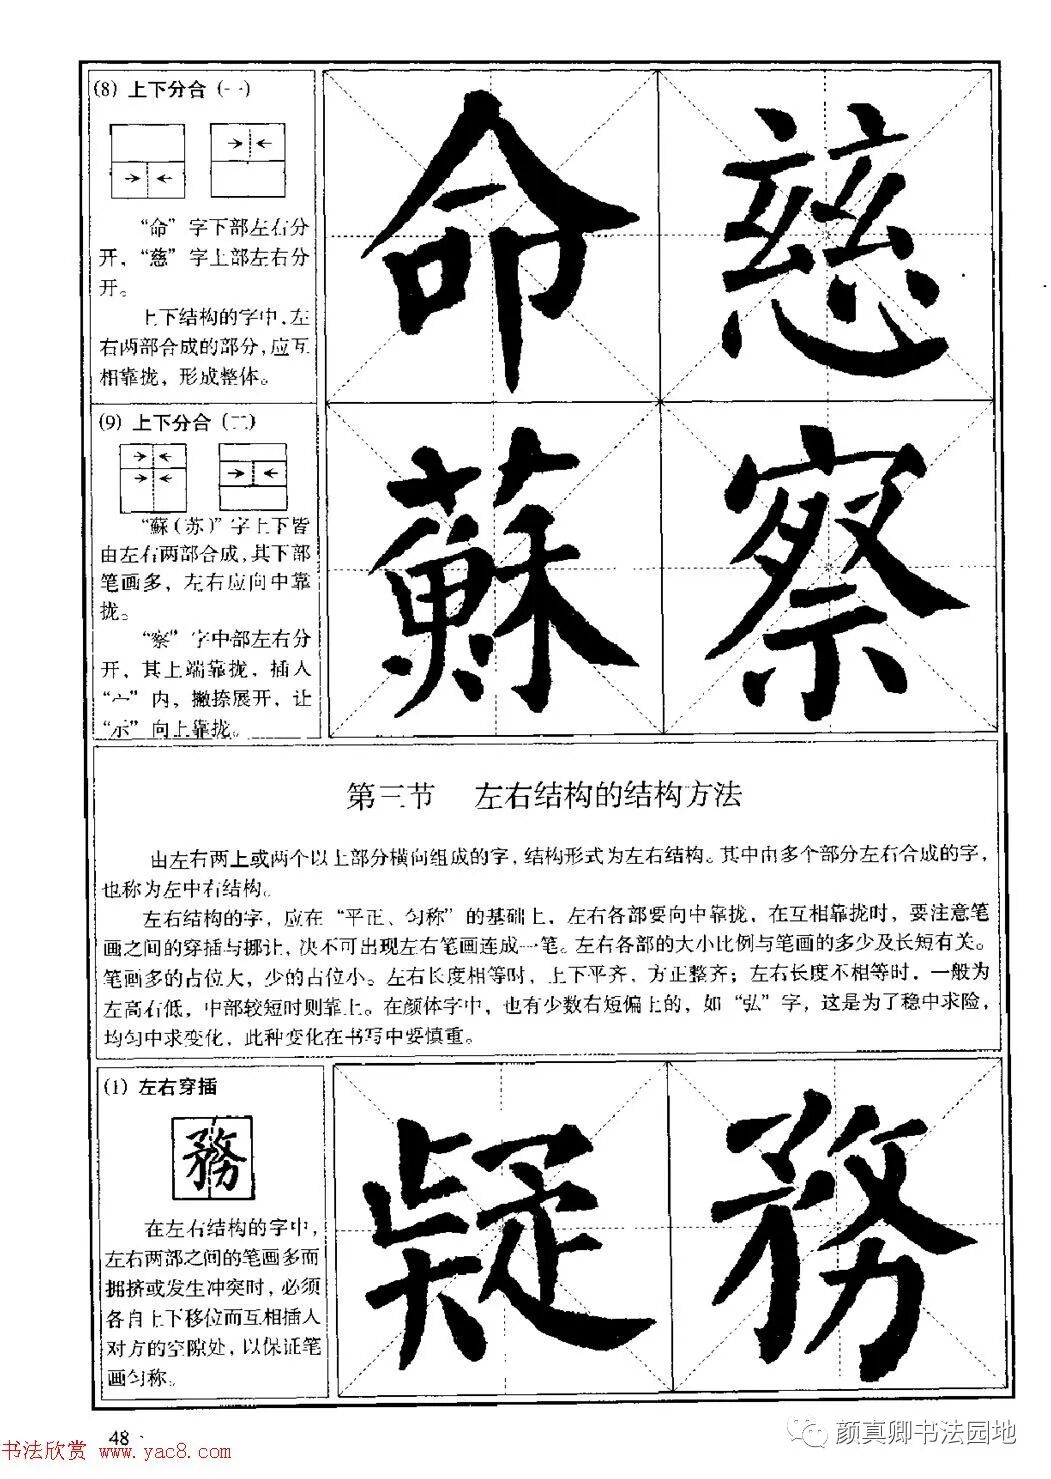 (8) 上下分合 (一)
“命”字下部左右分
开，“慈”字上部左右分
开。
上下结构的字中，左
右两部合成的部分，应互
相靠拢，形成整体。
命 慈
(9) 上下分合 (二)
“蘇(苏)”字上下皆
由左右两部合成，其下部
笔画多，左右应向中靠
拢。
“察”字中部左右分
开，其上端靠拢，插入
“宀”内，撇捺展开，让
“示”向上靠拢。
蘇 察
第三节 左右结构的结构方法
由左右两上或两个以上部分横向组成的字，结构形式为左右结构。其中由多个部分左右合成的字，
也称为左中右结构。
左右结构的字，应在“平正、匀称”的基础上，左右各部要向中靠拢，在互相靠拢时，要注意笔
画之间的穿插与挪让，决不可出现左右笔画连成一笔。左右各部的大小比例与笔画的多少及长短有关。
笔画多的占位大，少的占位小。左右长度相等时，上下平齐，方正整齐；左右长度不相等时，一般为
左高右低，中部较短时则靠上。在颜体字中，也有少数右短偏上的，如“弘”字，这是为了稳中求险，
均匀中求变化，此种变化在书写中要慎重。
(1) 左右穿插
務
在左右结构的字中，
左右两部之间的笔画多而
拥挤或发生冲突时，必须
各自上下移位而互相插入
对方的空隙处，以保证笔
画匀称。
疑 務
48
书法欣赏 www.yac8.com
颜真卿书法园地